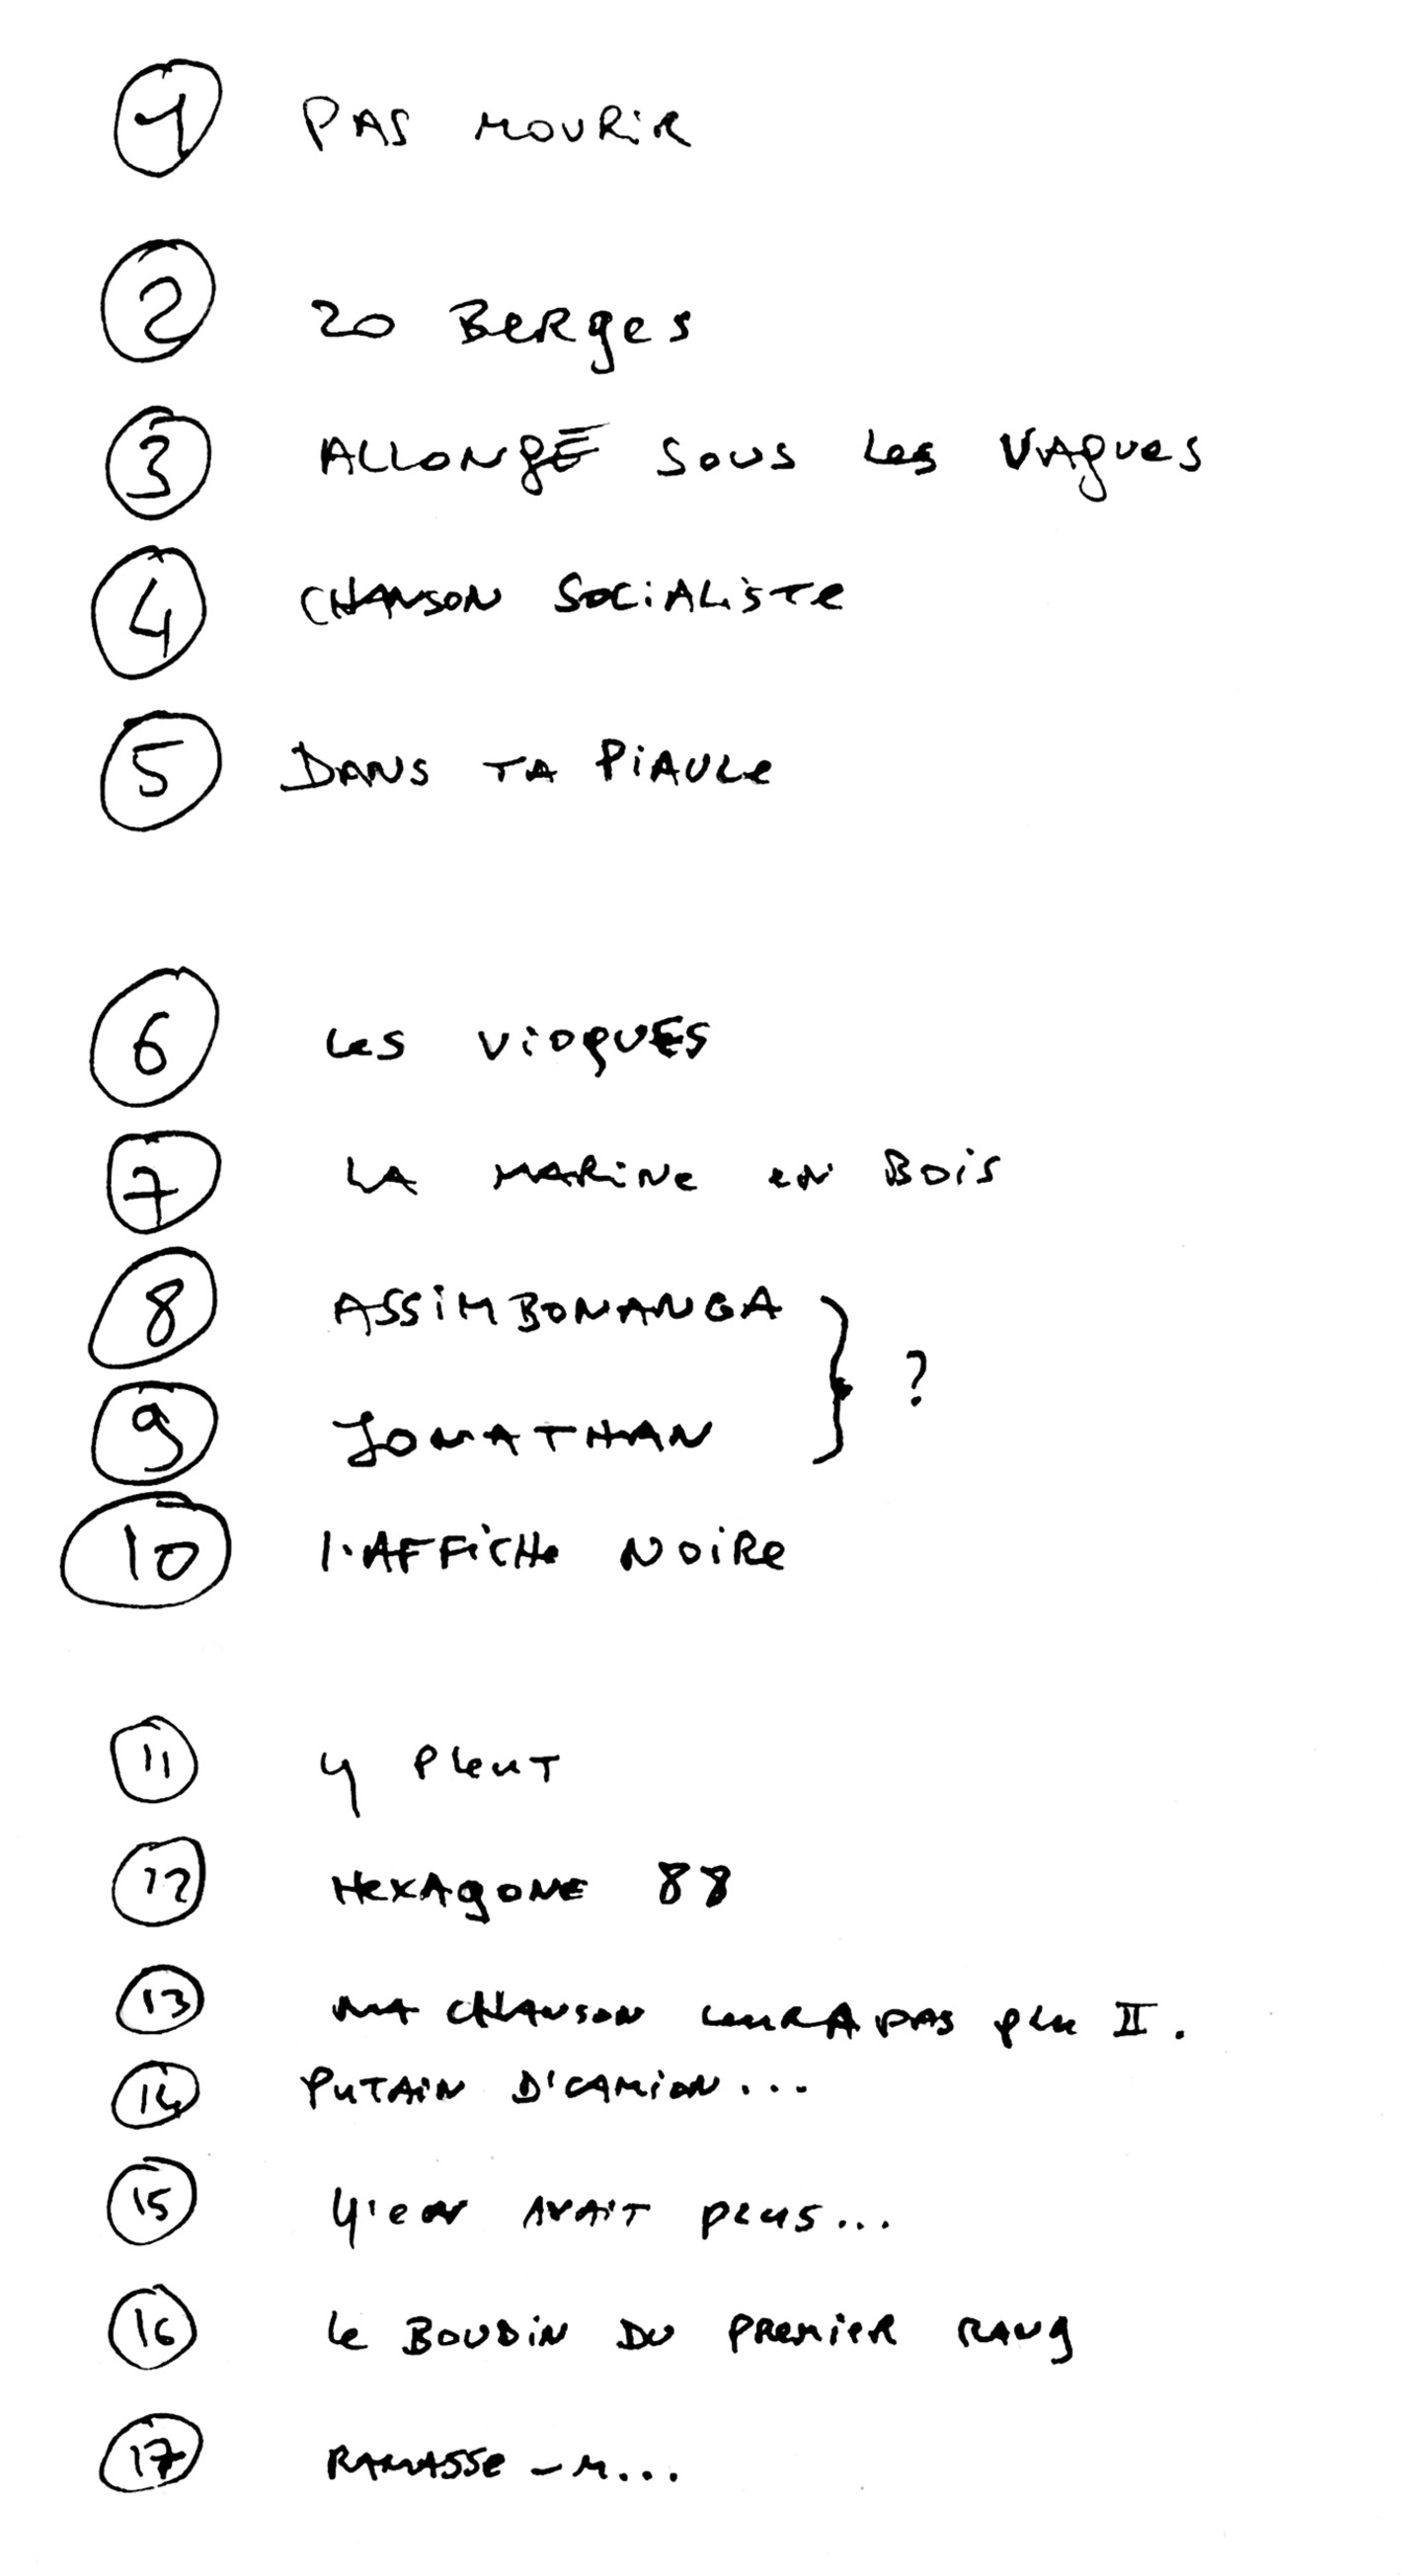 1 PAS MOURIR
2 20 BERGES
3 ALLONGÉ SOUS LES VAGUES
4 CHANSON SOCIALISTE
5 DANS TA PIAULE
6 LES VIOQUES
7 LA MARINE EN BOIS
8 ASSIMBONANGA
} ?
9 JONATHAN
10 l'AFFICHE NOIRE
11 Y PLEUT
12 HEXAGONE 88
13 MA CHANSON LEUR A PAS PLU II.
14 PUTAIN D'CAMION...
15 Y'EN AVAIT PLUS...
16 LE BOUDIN DU PREMIER RANG
17 RAMASSE-M...